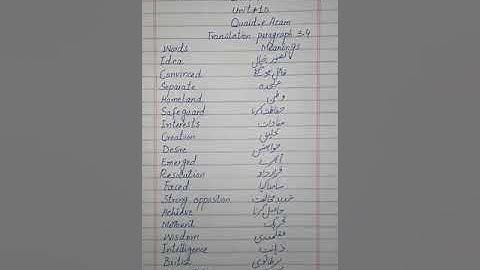 Unit #10
Quaid-e-Azam
Translation paragraph 3.4
Words Meanings
Idea تصور، خیال
Convinced قائل
Separate علیحدہ
Homeland وطن
Safeguard حفاظت کرنا
Interests مفادات
Creation تخلیق
Desire خواہش
Emerged
Resolution قرارداد
Faced سامنا کیا
Strong opposition شدید مخالفت
Achieve حاصل کرنا
Moment تحریک
Wisdom عقلمندی
Intelligence ذہانت
British برطانوی